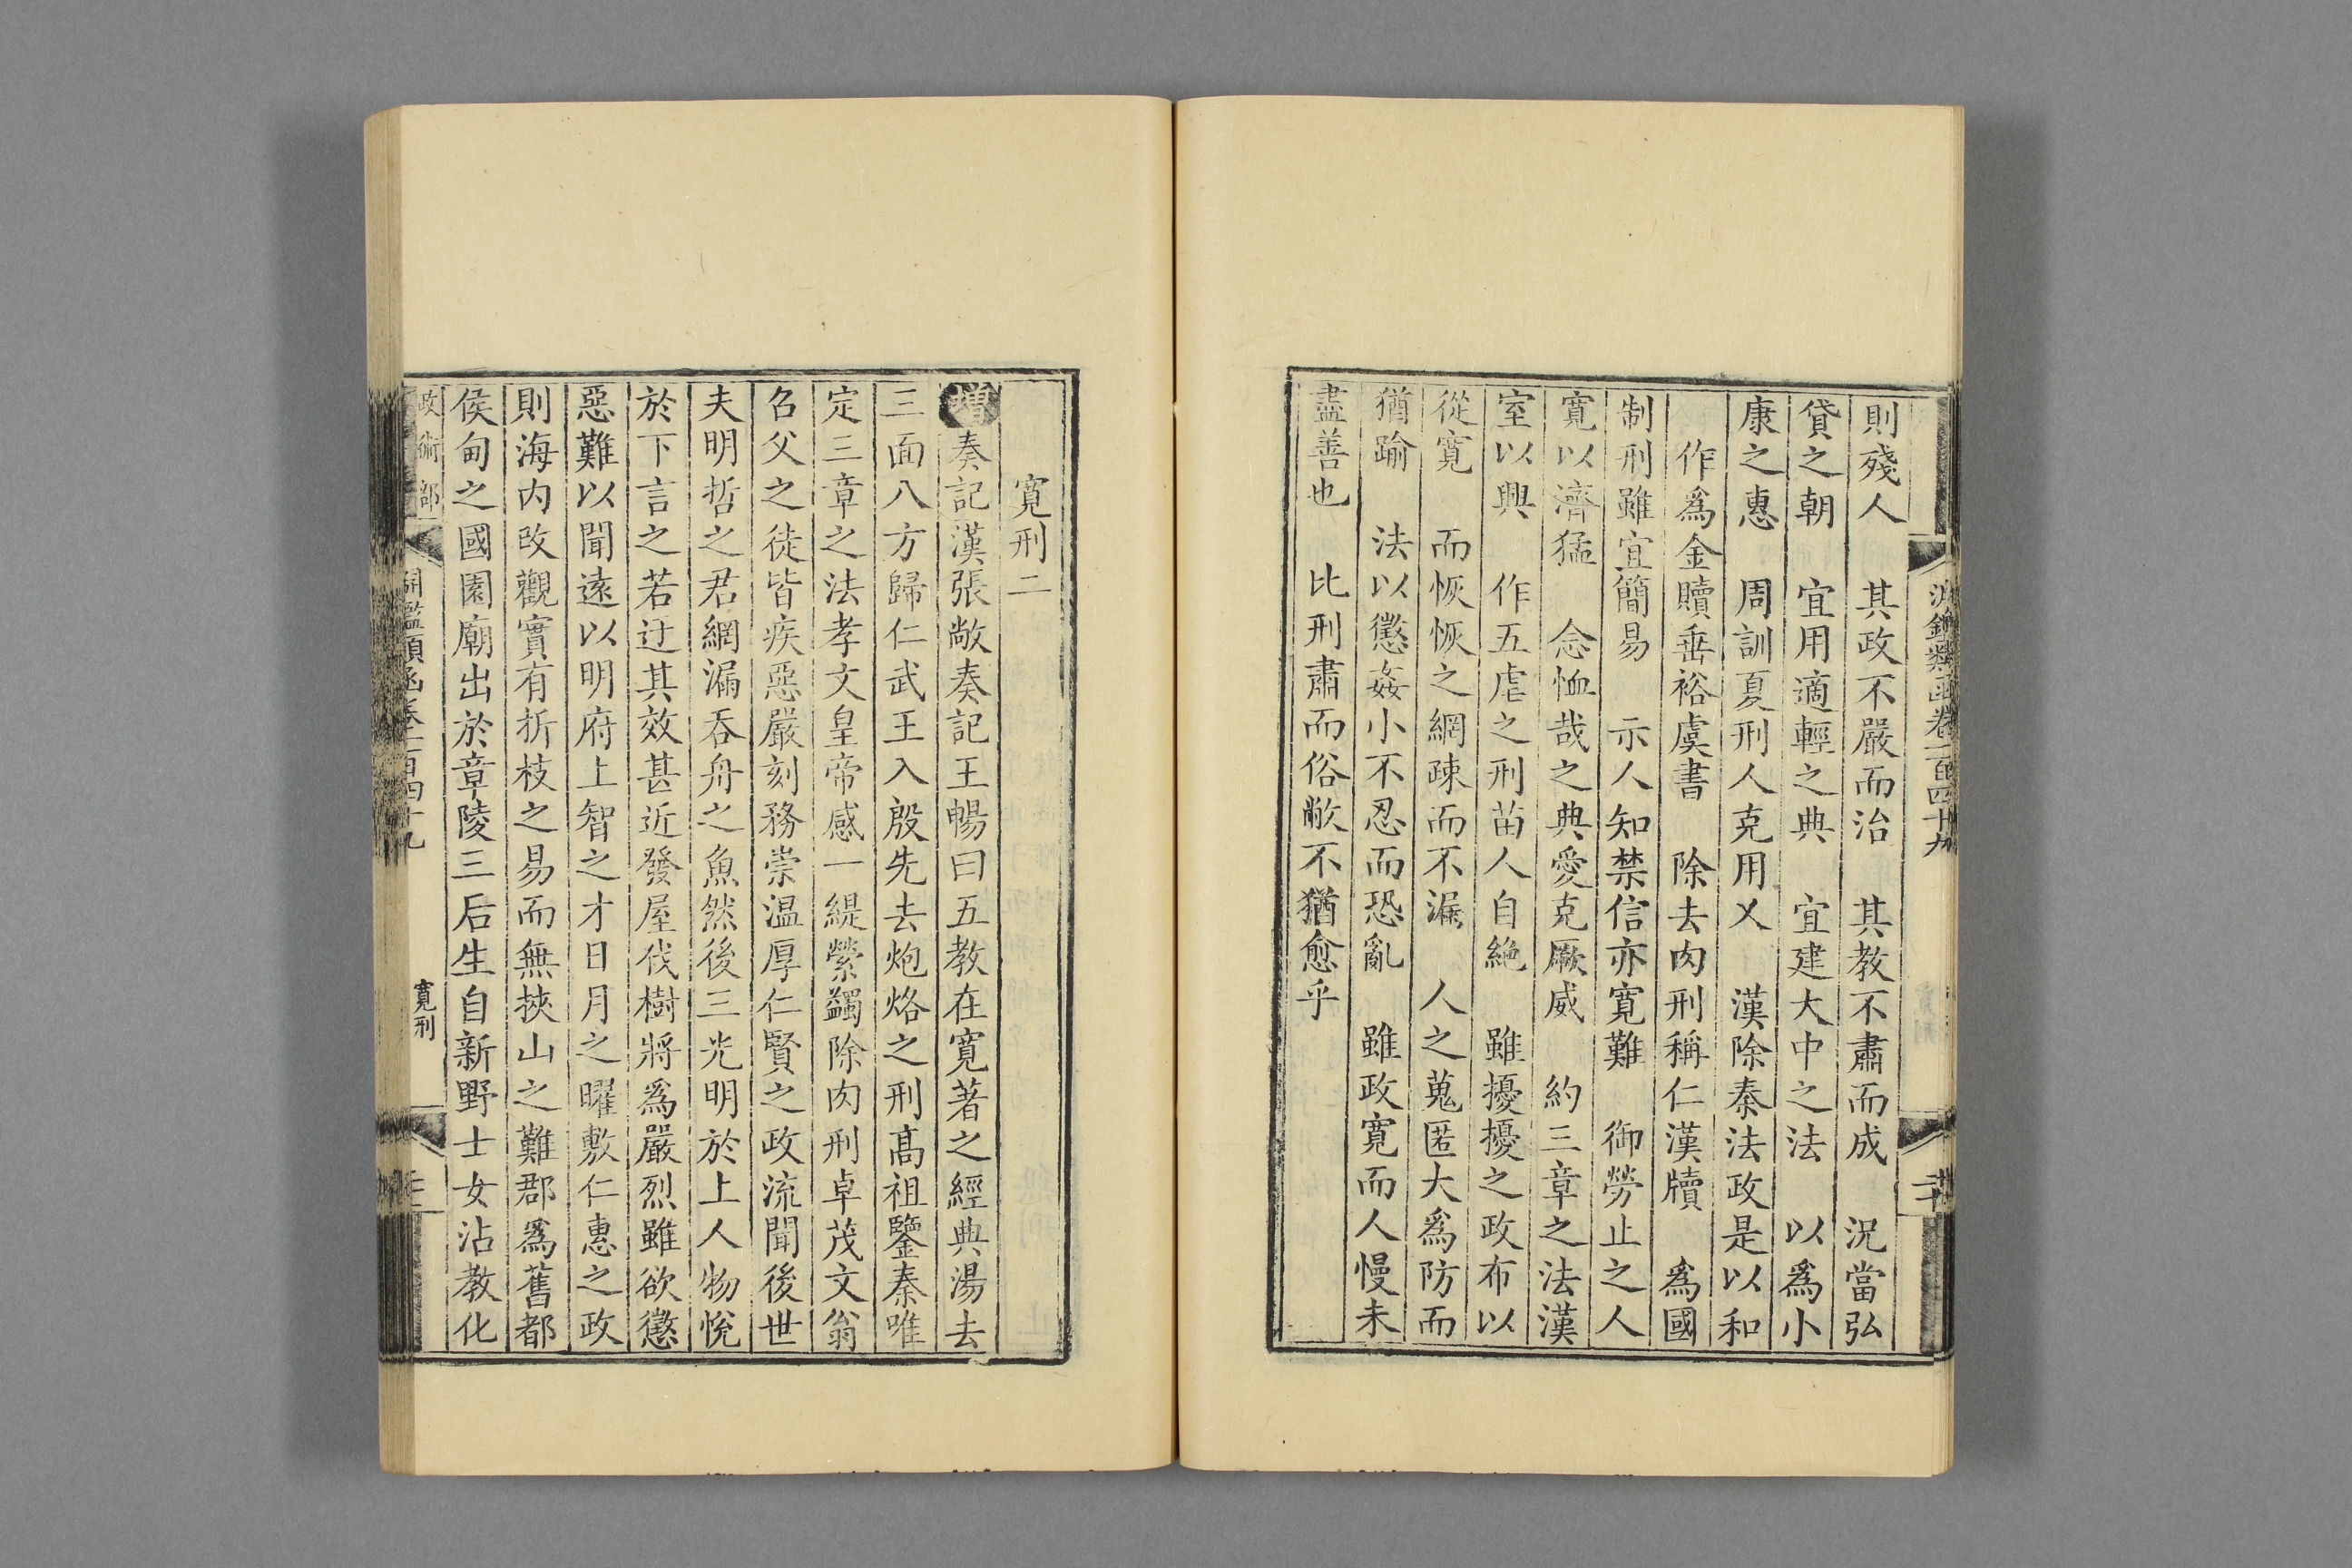 則殘人　其政不嚴而治　其教不肅而成　況當弘
貸之朝　宜用適輕之典　宜建大中之法　以爲小
康之惠　周訓夏刑人克用乂　漢除秦法政是以和
作爲金贖垂裕虞書　除去肉刑稱仁漢牘　爲國
制刑雖宜簡易　示人知禁信亦寛難　御勞止之人
寛以濟猛　念恤哉之典愛克厥威　約三章之法漢
室以興　作五虐之刑苗人自絶　雖擾擾之政布以
從寛　而恢恢之網疎而不漏　人之蒐匿大爲防而
猶踰　法以懲姦小不忍而恐亂　雖政寛而人慢未
盡善也　比刑肅而俗敝不猶愈乎
淵鑑類函卷一百四十九
二十
寛刑二
增奏記漢張敞奏記王暢曰五教在寛著之經典湯去
三面八方歸仁武王入殷先去炮烙之刑髙祖鑒秦唯
定三章之法孝文皇帝感一緹縈蠲除肉刑卓茂文翁
召父之徒皆疾惡嚴刻務崇温厚仁賢之政流聞後世
夫明哲之君網漏吞舟之魚然後三光明於上人物悅
於下言之若迂其效甚近發屋伐樹將爲嚴烈雖欲懲
惡難以聞遠以明府上智之才日月之曜敷仁惠之政
則海内改觀實有折枝之易而無挾山之難郡爲舊都
侯甸之國園廟出於章陵三后生自新野士女沾教化
政術部
寛刑